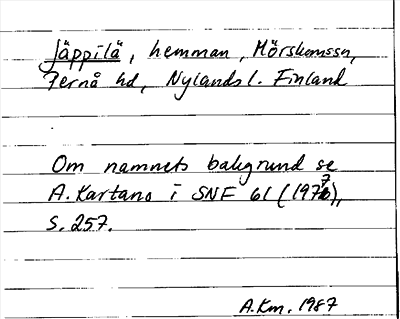 Jäppilä, hemman, Mörskomssn,
Pernå hd, Nylands l. Finland
Om namnets bakgrund se
A. Kartano i SNF 61 (1973),
s. 257.
A.Km. 1987